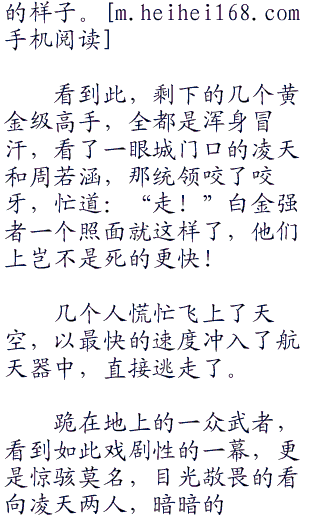 的样子。[m.heihei168.com
手机阅读]
看到此，剩下的几个黄
金级高手，全都是浑身冒
汗，看了一眼城门口的凌天
和周若涵，那统领咬了咬
牙，忙道：“走！”白金强
者一个照面就这样了，他们
上岂不是死的更快！
几个人慌忙飞上了天
空，以最快的速度冲入了航
天器中，直接逃走了。
跪在地上的一众武者，
看到如此戏剧性的一幕，更
是惊骇莫名，目光敬畏的看
向凌天两人，暗暗的